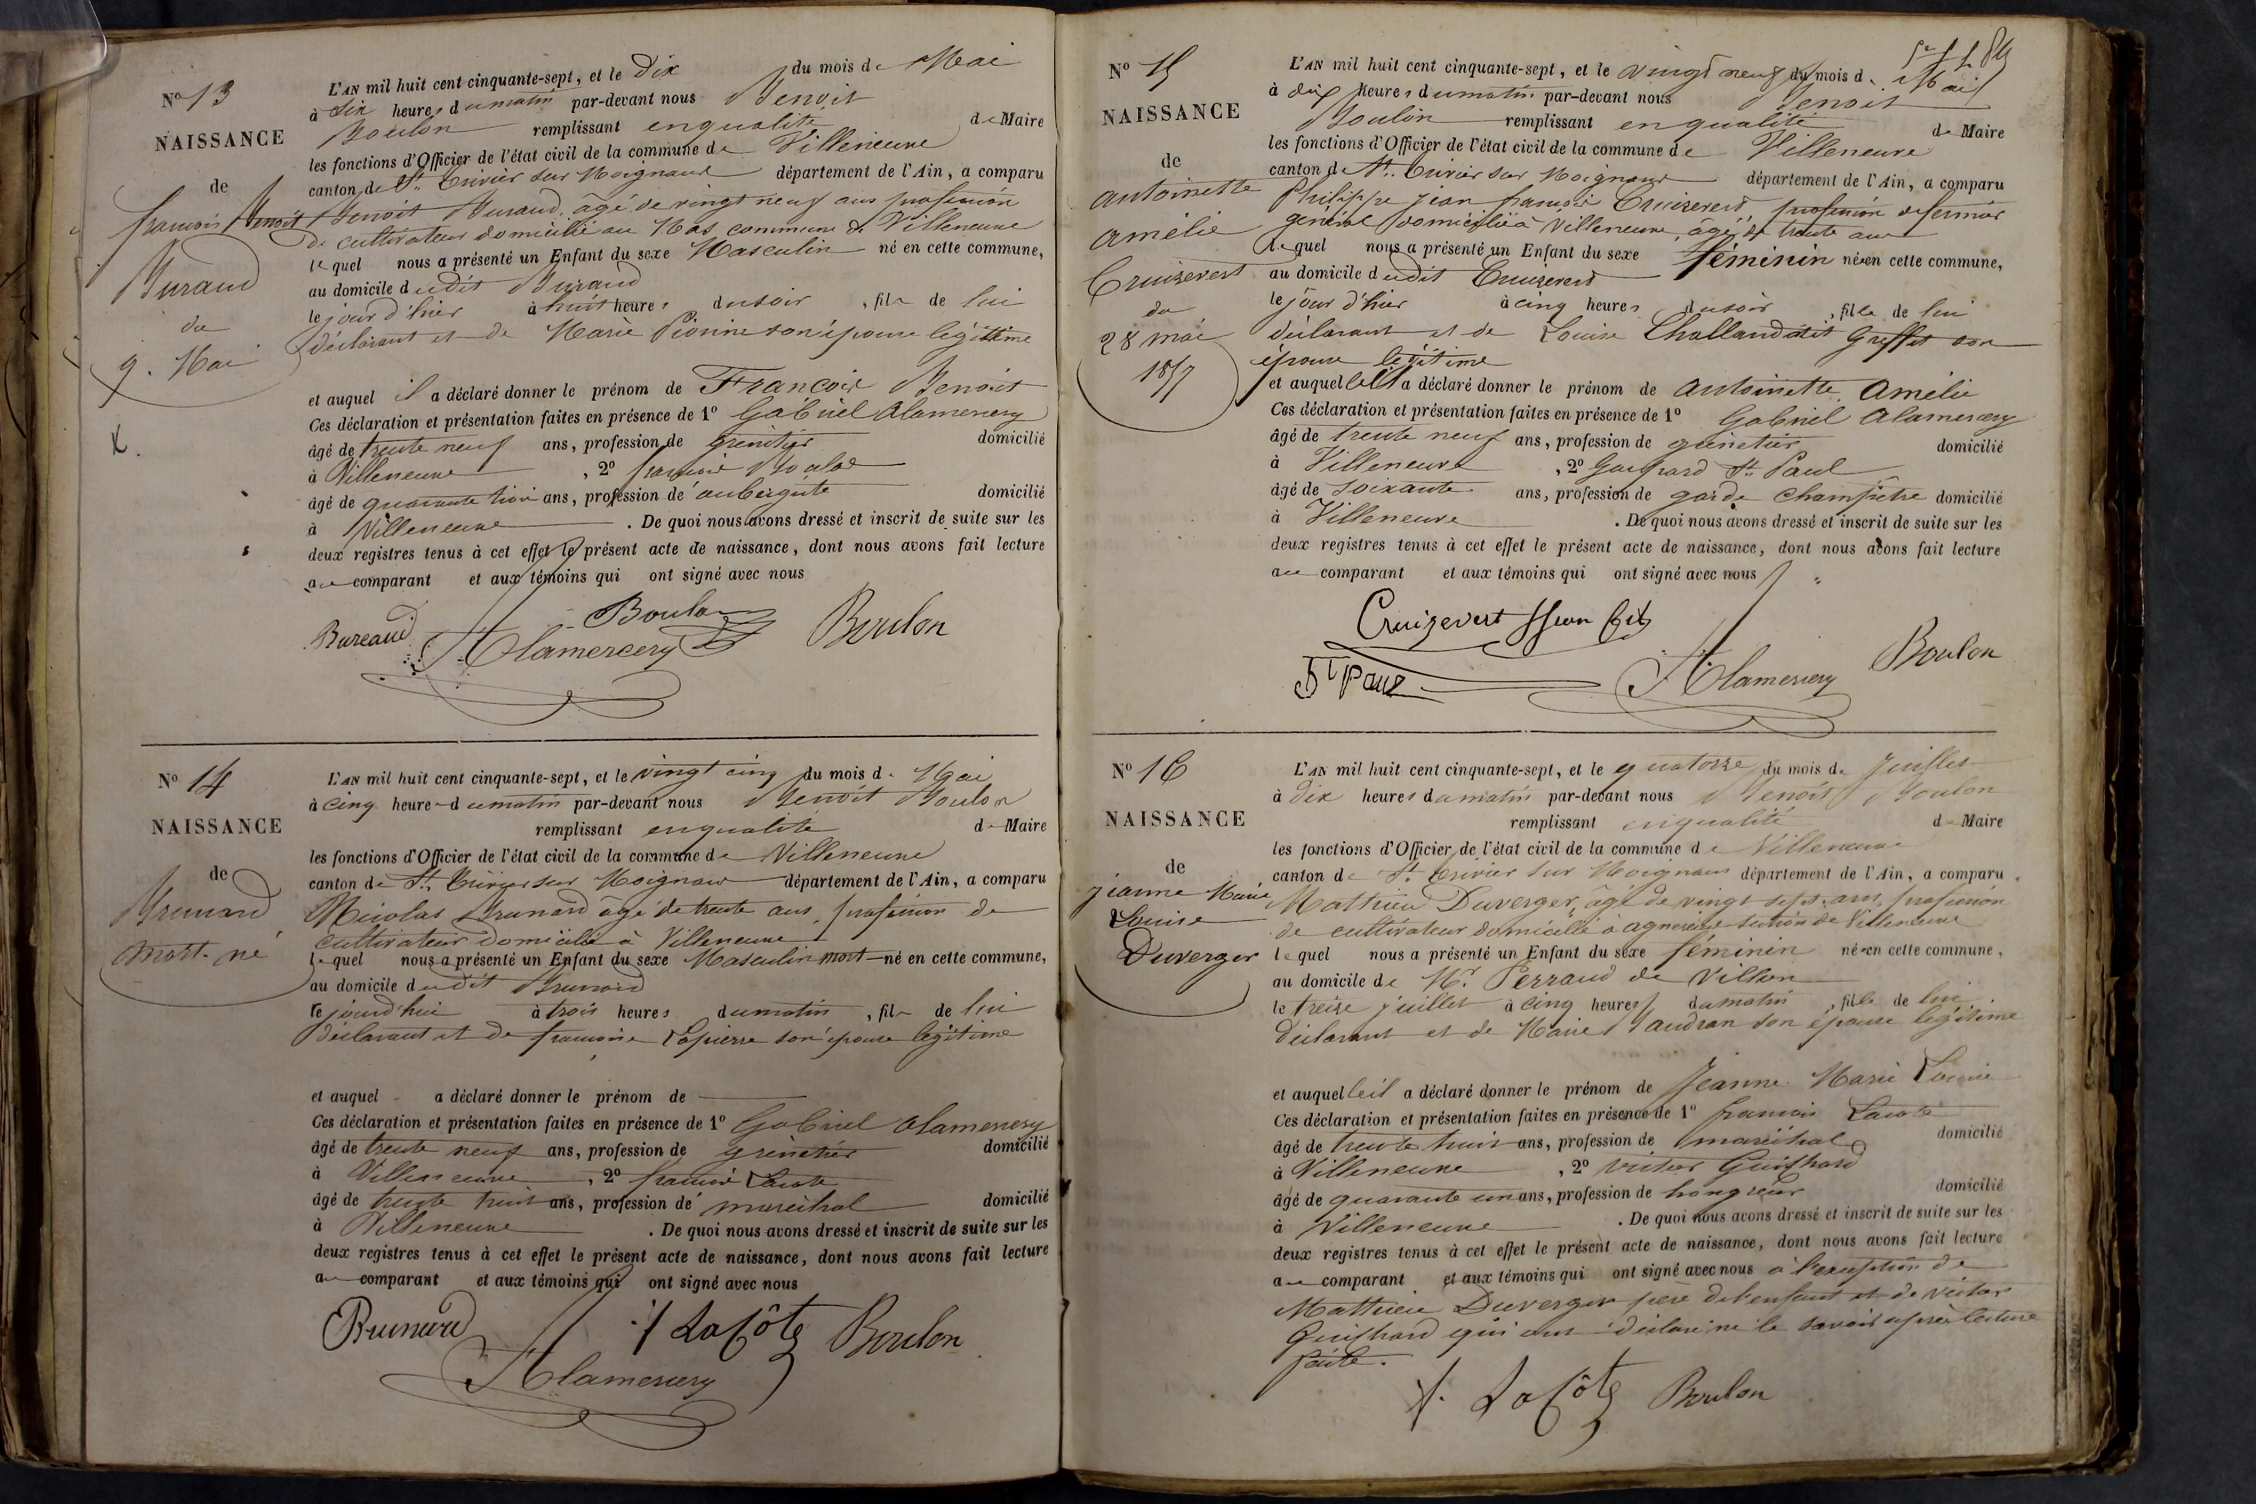 N° 13
NAISSANCE
de
françois Benoit
Buraud
du
9. Mai
L'AN mil huit cent cinquante-sept, et le Dix du mois de Mai
à Six heures du matin par-devant nous Benoit
Boulon remplissant en qualité de Maire
les fonctions d'Officier de l'état civil de la commune de Villeneuve
canton de St. Trivier sur Moignans département de l'Ain, a comparu
Benoit Buraud, âgé de vingt neuf ans profession
de cultivateur domicilié au Mas commune de Villeneuve
lequel nous a présenté un Enfant du sexe Masculin né en cette commune,
au domicile dudit Buraud
le jour d'hier à huit heures du soir, fils de lui
déclarant et de Marie Pionin son épouse légitime
et auquel il a déclaré donner le prénom de François Benoit
Ces déclaration et présentation faites en présence de 1° Gabriel Alamercery
âgé de trente neuf ans, profession de grenetier domicilié
à Villeneuve, 2° françois
âgé de quarante trois ans, profession d'aubergiste domicilié
à Villeneuve. De quoi nous avons dressé et inscrit de suite sur les
deux registres tenus à cet effet le présent acte de naissance, dont nous avons fait lecture
au comparant et aux témoins qui ont signé avec nous
Bureaud Alamercery Boulon Boulon
N° 14
NAISSANCE
de
Brunard
mort-né
L'AN mil huit cent cinquante-sept, et le vingt cinq du mois de Mai
à cinq heures du matin par-devant nous Benoit Boulon
remplissant en qualité de Maire
les fonctions d'Officier de l'état civil de la commune de Villeneuve
canton de St. Trivier sur Moignans département de l'Ain, a comparu
Nicolas Brunard âgé de trente ans, profession de
cultivateur domicilié à Villeneuve
lequel nous a présenté un Enfant du sexe Masculin mort-né en cette commune,
au domicile dudit Brunard
le jourd'hui à trois heures du matin, fils de lui
déclarant et de françoise Lapierre son épouse légitime
et auquel a déclaré donner le prénom de
Ces déclaration et présentation faites en présence de 1° Gabriel Alamercery
âgé de trente neuf ans, profession de grenetier domicilié
à Villeneuve, 2° françois Lacote
âgé de trente huit ans, profession de maréchal domicilié
à Villeneuve. De quoi nous avons dressé et inscrit de suite sur les
deux registres tenus à cet effet le présent acte de naissance, dont nous avons fait lecture
au comparant et aux témoins qui ont signé avec nous
Brunard Alamercery f LaCôte Boulon
84
N° 15
NAISSANCE
de
antoinette
amélie
Cruizevert
du
28 mai
1857
L'AN mil huit cent cinquante-sept, et le vingt neuf du mois de Mai
à dix heures du matin par-devant nous Benoit
Boulon remplissant en qualité de Maire
les fonctions d'Officier de l'état civil de la commune de Villeneuve
canton de St. Trivier sur Moignans département de l'Ain, a comparu
Philippe jean françois Cruizevert, profession de fermier
général domicilié à Villeneuve, âgé de trente ans
lequel nous a présenté un Enfant du sexe féminin née en cette commune,
au domicile dudit Cruizevert
le jour d'hier à cinq heures du soir, fille de lui
déclarant et de Louise Challand dit Greffet son
épouse légitime
et auquel il a déclaré donner le prénom de antoinette Amélie
Ces déclaration et présentation faites en présence de 1° Gabriel Alamercery
âgé de trente neuf ans, profession de grenetier domicilié
à Villeneuve, 2° Gaspard St. Paul
âgé de soixante ans, profession de garde champêtre domicilié
à Villeneuve. De quoi nous avons dressé et inscrit de suite sur les
deux registres tenus à cet effet le présent acte de naissance, dont nous avons fait lecture
au comparant et aux témoins qui ont signé avec nous
Cruizevert Jean fils
St Paul Alamercery Boulon
N° 16
NAISSANCE
de
jeanne Marie
Louise
Duverger
L'AN mil huit cent cinquante-sept, et le quatorze du mois de Juillet
à dix heures du matin par-devant nous Benoit Boulon
remplissant en qualité de Maire
les fonctions d'Officier de l'état civil de la commune de Villeneuve
canton de St. Trivier sur Moignans département de l'Ain, a comparu
Mathieu Duverger, âgé de vingt sept ans, profession
de cultivateur domicilié à agnereins section de Villeneuve
lequel nous a présenté un Enfant du sexe féminin née en cette commune,
au domicile de Mr. Perraud de Villon
le treize juillet à cinq heures du matin, fille de lui
déclarant et de Marie Baudran son épouse légitime
et auquel il a déclaré donner le prénom de Jeanne Marie Louise
Ces déclaration et présentation faites en présence de 1° françois Lacote
âgé de trente huit ans, profession de maréchal domicilié
à Villeneuve, 2° victor Guichard
âgé de quarante un ans, profession de hongreur domicilié
à Villeneuve. De quoi nous avons dressé et inscrit de suite sur les
deux registres tenus à cet effet le présent acte de naissance, dont nous avons fait lecture
au comparant et aux témoins qui ont signé avec nous à l'exception de
Mathieu Duverger père de l'enfant et de victor
Guichard qui ont déclaré ne le savoir après lecture
faite.
f. LaCôte Boulon